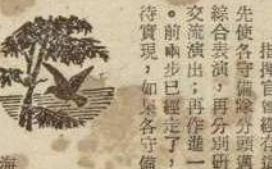 指揮官曾經有
先使各守備隊分頭
綜合表演，再分別研
交流演出；再作進一
。前兩步已經走了，
待實現，如果各守備
海